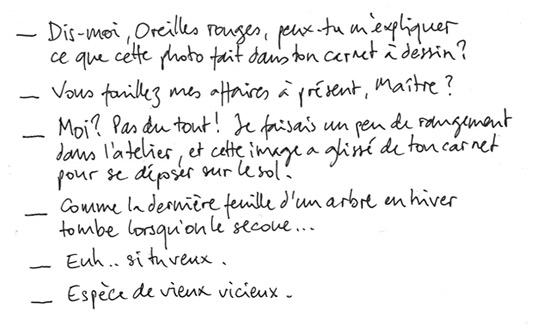 — Dis-moi, Oreilles rouges, peux-tu m'expliquer
ce que cette photo fait dans ton carnet à dessin?
— Vous fouillez mes affaires à présent, Maître?
— Moi? Pas du tout! Je faisais un peu de rangement
dans l'atelier, et cette image a glissé de ton carnet
pour se déposer sur le sol.
— Comme la dernière feuille d'un arbre en hiver
tombe lorsqu'on le secoue...
— Euh.. si tu veux.
— Espèce de vieux vicieux.